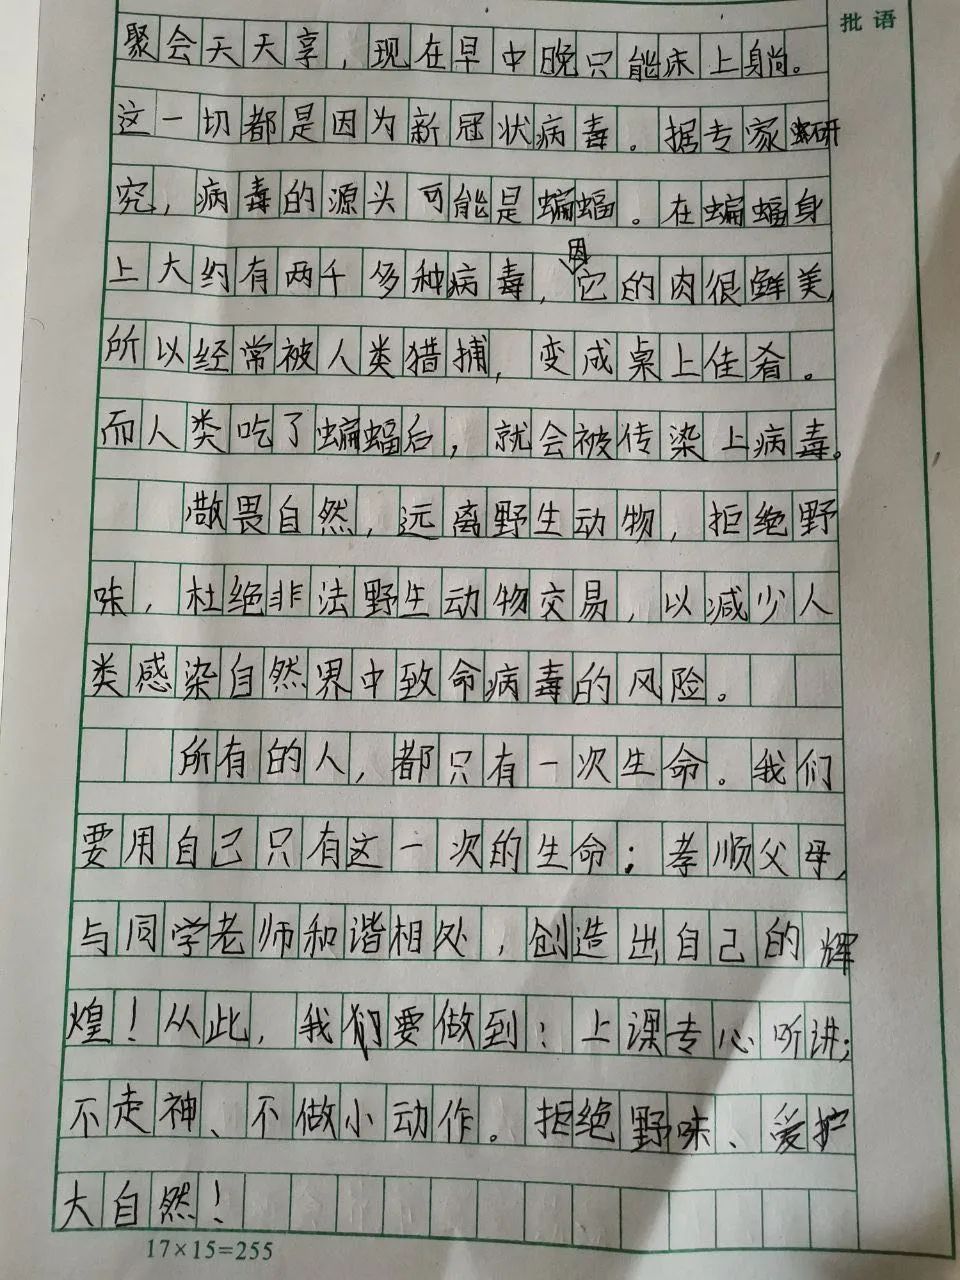 批语
聚会天天享，现在早中晚只能床上躺。
这一切都是因为新冠状病毒。据专家研
究，病毒的源头可能是蝙蝠。在蝙蝠身
上大约有两千多种病毒，因它的肉很鲜美，
所以经常被人类猎捕，变成桌上佳肴。
而人类吃了蝙蝠后，就会被传染上病毒。
敬畏自然，远离野生动物，拒绝野
味，杜绝非法野生动物交易，以减少人
类感染自然界中致命病毒的风险。
所有的人，都只有一次生命。我们
要用自己只有这一次的生命；孝顺父母，
与同学老师和谐相处，创造出自己的辉
煌！从此，我们要做到：上课专心听讲；
不走神、不做小动作。拒绝野味、爱护
大自然！
17×15=255